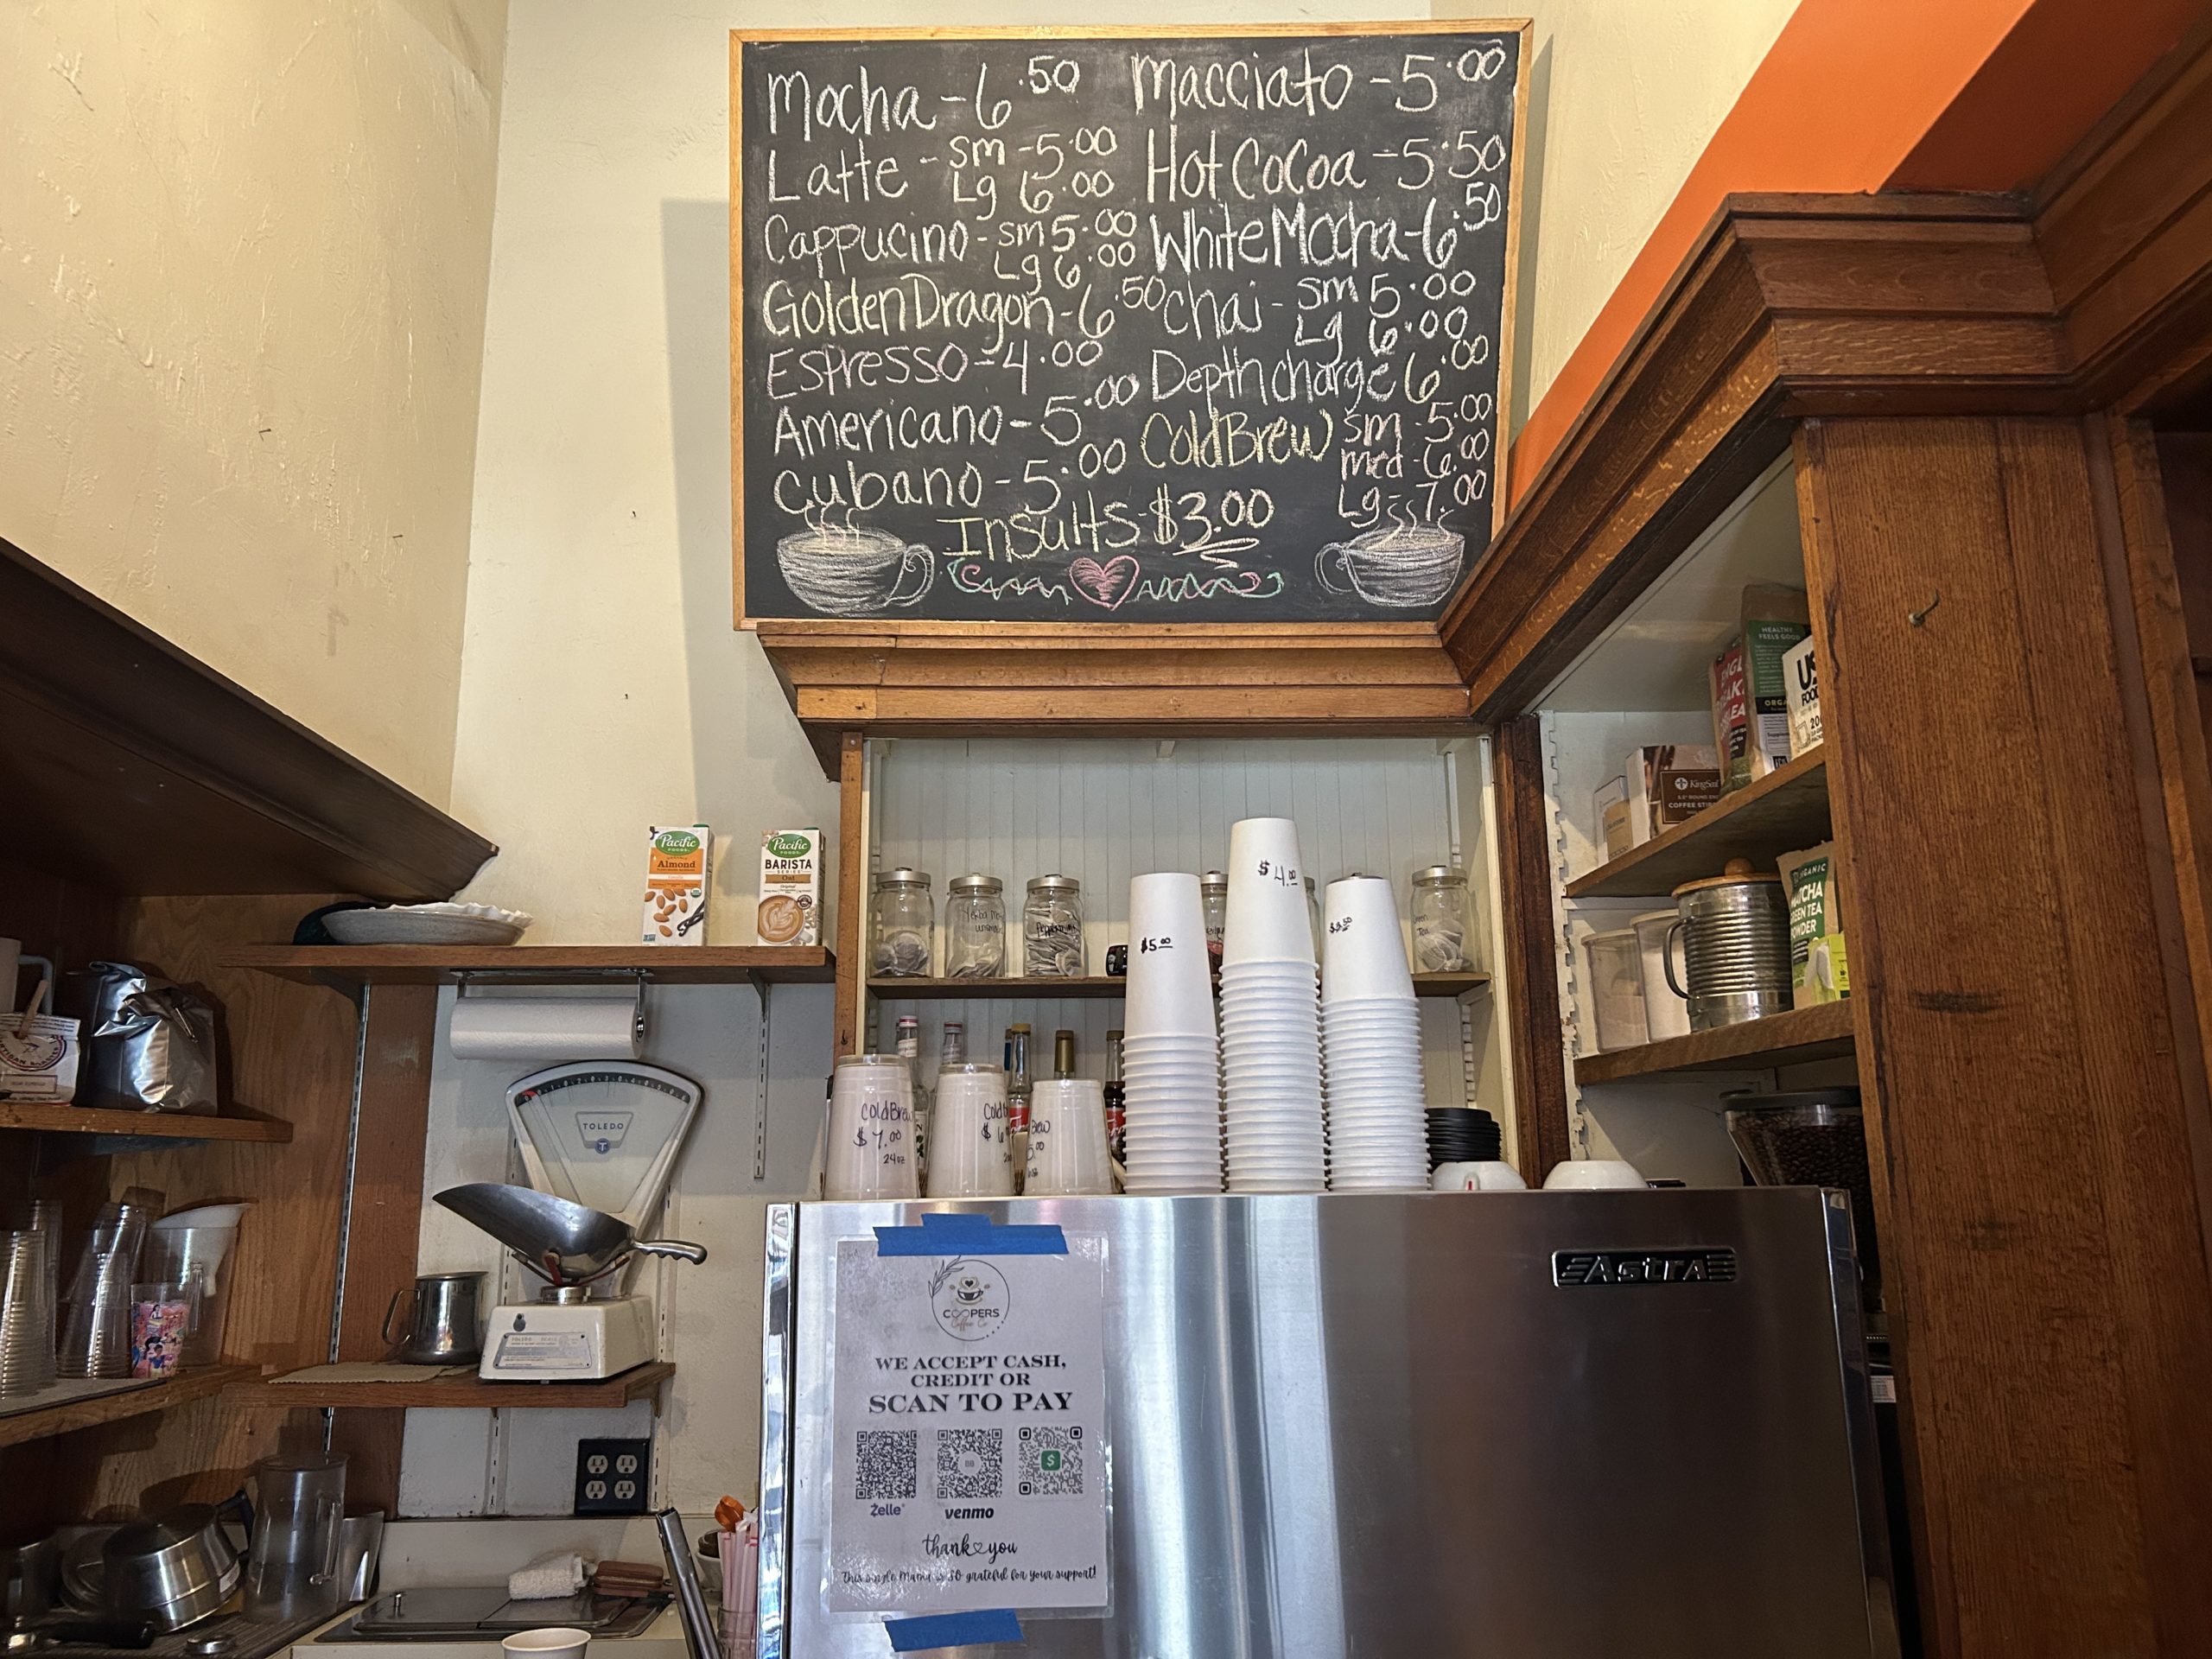 Mocha - 6.50
Latte - sm - 5.00
Lg 6.00
Cappucino - sm 5.00
Lg 6.00
Golden Dragon - 6.50
Espresso - 4.00
Americano - 5.00
Cubano - 5.00
Macciato - 5.00
Hot Cocoa - 5.50
White Mocha - 6.50
Chai - sm 5.00
Lg 6.00
Depth charge 6.00
Cold Brew sm - 5.00
med - 6.00
Lg - 7.00
Insults - $3.00
Pacific
FOODS
Almond
Pacific
FOODS
BARISTA
SERIES
Oat
Peppermint
$5.00
$4.00
HEALTHY
FEELS GOOD
US
FOO
KingSeal
COFFEE STIR
ORGANIC
MATCHA
GREEN TEA
POWDER
TOLEDO
Cold Brew
$7.00
24oz
Cold
$6
Astra
COOPERS
Coffee Co
WE ACCEPT CASH,
CREDIT OR
SCAN TO PAY
Zelle
venmo
thank you
This single Mama is SO grateful for your support!